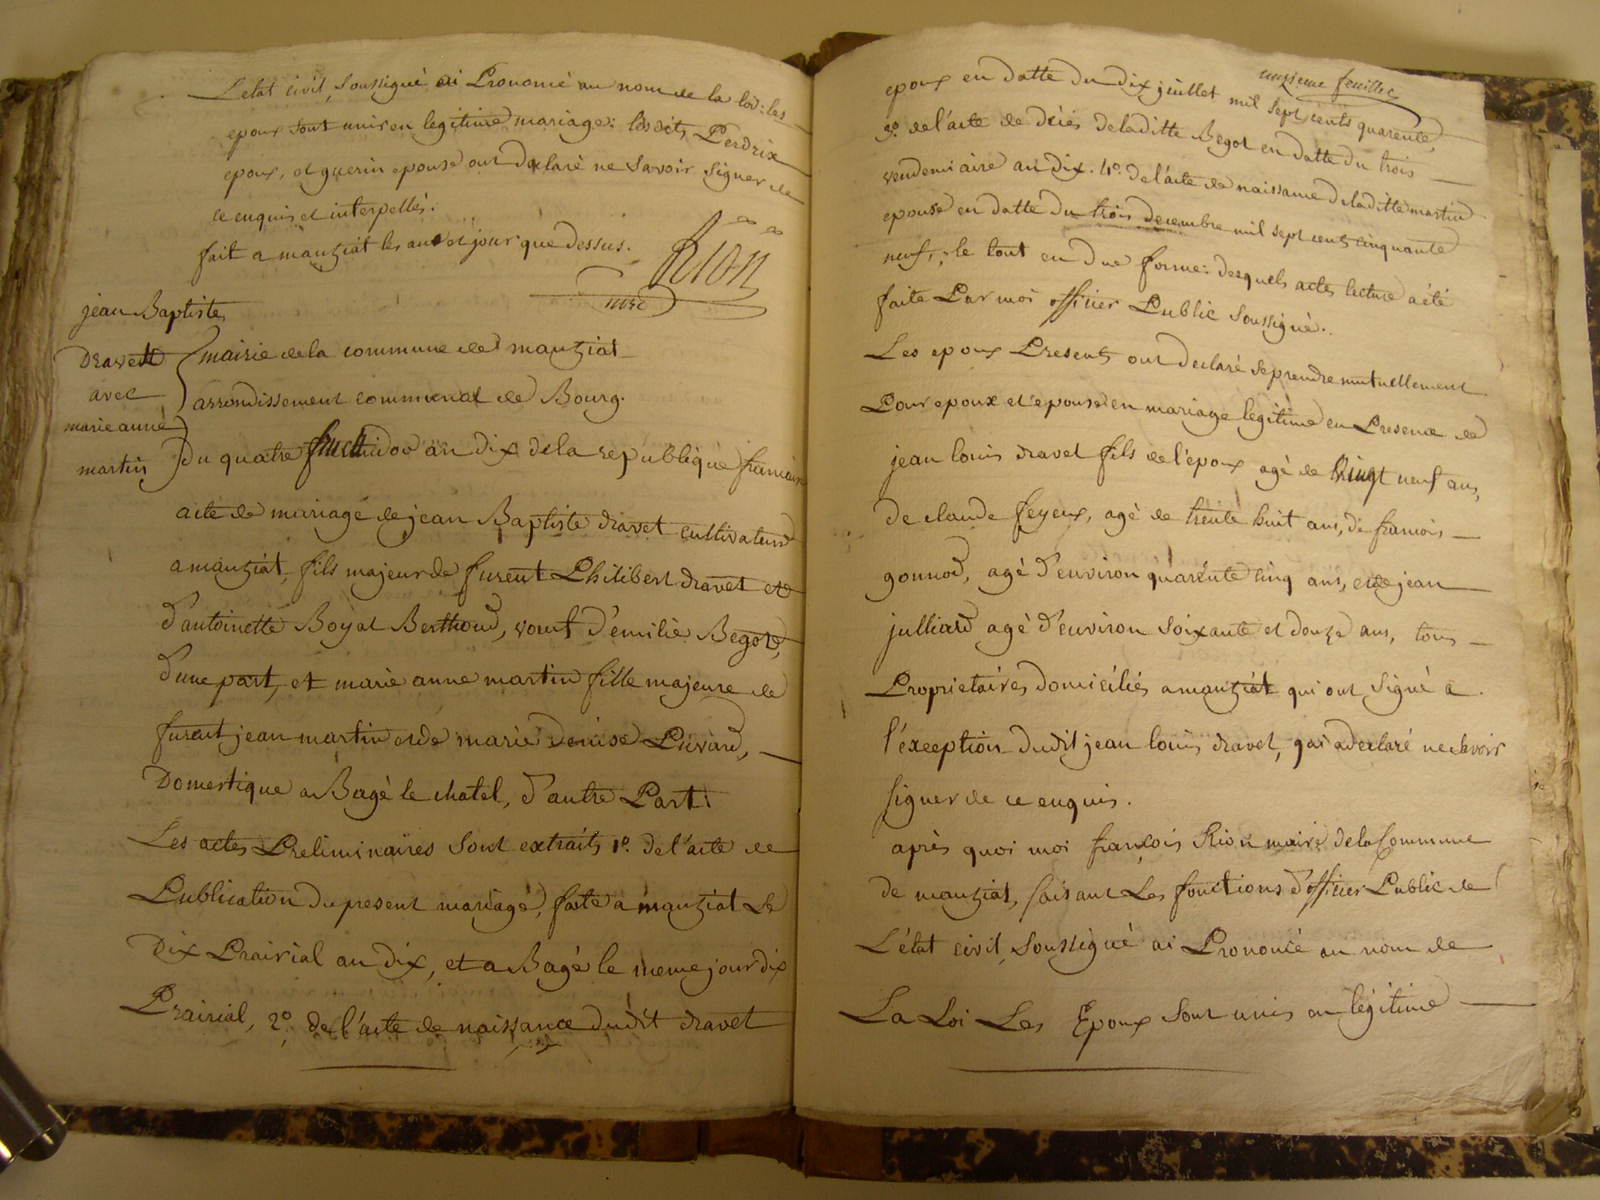 L'etat civil, soussigné ai Prononcé au nom de la loi: les
epoux sont unis en legitime mariage: lesdits Perdrix
epoux, et guerin epouse ont declaré ne savoir signer de
ce enquis et interpellés.
fait a manziat les an et jour que dessus.
Rion
mre
jean Baptiste
Dravet
avec
marie anne
martin
mairie de la commune de manziat
arrondissement communal de Bourg.
Du quatre fructidor an dix de la republique francaise
acte de mariage de jean Baptiste dravet cultivateur
a manziat, fils majeur de furent Philibert dravet et
d'antoinette Boyat Berthoud, veuf d'emilie Begot,
d'une part, et marie anne martin fille majeure de
furent jean martin et de marie denise Puvard,
Domestique a Bagé le chatel, d'autre Part:
Les actes Preliminaires sont extraits 1º. de l'acte de
Publication du present mariage, faite a manziat le
Dix Prairial an dix, et a Bagé le meme jour dix
Prairial, 2º. de l'acte de naissance dudit dravet
unzieme feuillet
epoux en datte du dix juillet mil sept cents quarente,
3º. de l'acte de décés de laditte Begot en datte du trois
vendemiaire an dix. 4º. de l'acte de naissance de laditte martin
epouse en datte du trois decembre mil sept cents cinquante
neuf, : le tout en due forme: desquels actes lecture a été
faite Par moi officier Public soussigné.
Les epoux Presents ont declaré se prendre mutuellement
Pour epoux et epouse en mariage legitime en Presence de
jean louis dravet fils de l'epoux agé de vingt neuf ans,
de claude feyeux, agé de trente huit ans, de francois
gonnod, agé d'environ quarente cinq ans, et de jean
julliard agé d'environ soixante et douze ans, tous
Proprietaires domiciliés a manziat qui ont signé a
l'exception dudit jean louis dravet, qui a declaré ne savoir
signer de ce enquis.
après quoi moi françois Rion maire de la Commune
de manziat, faisant Les fonctions d'officier Public de
L'état civil, soussigné ai Prononcé au nom de
La Loi Les Epoux sont unis en légitime